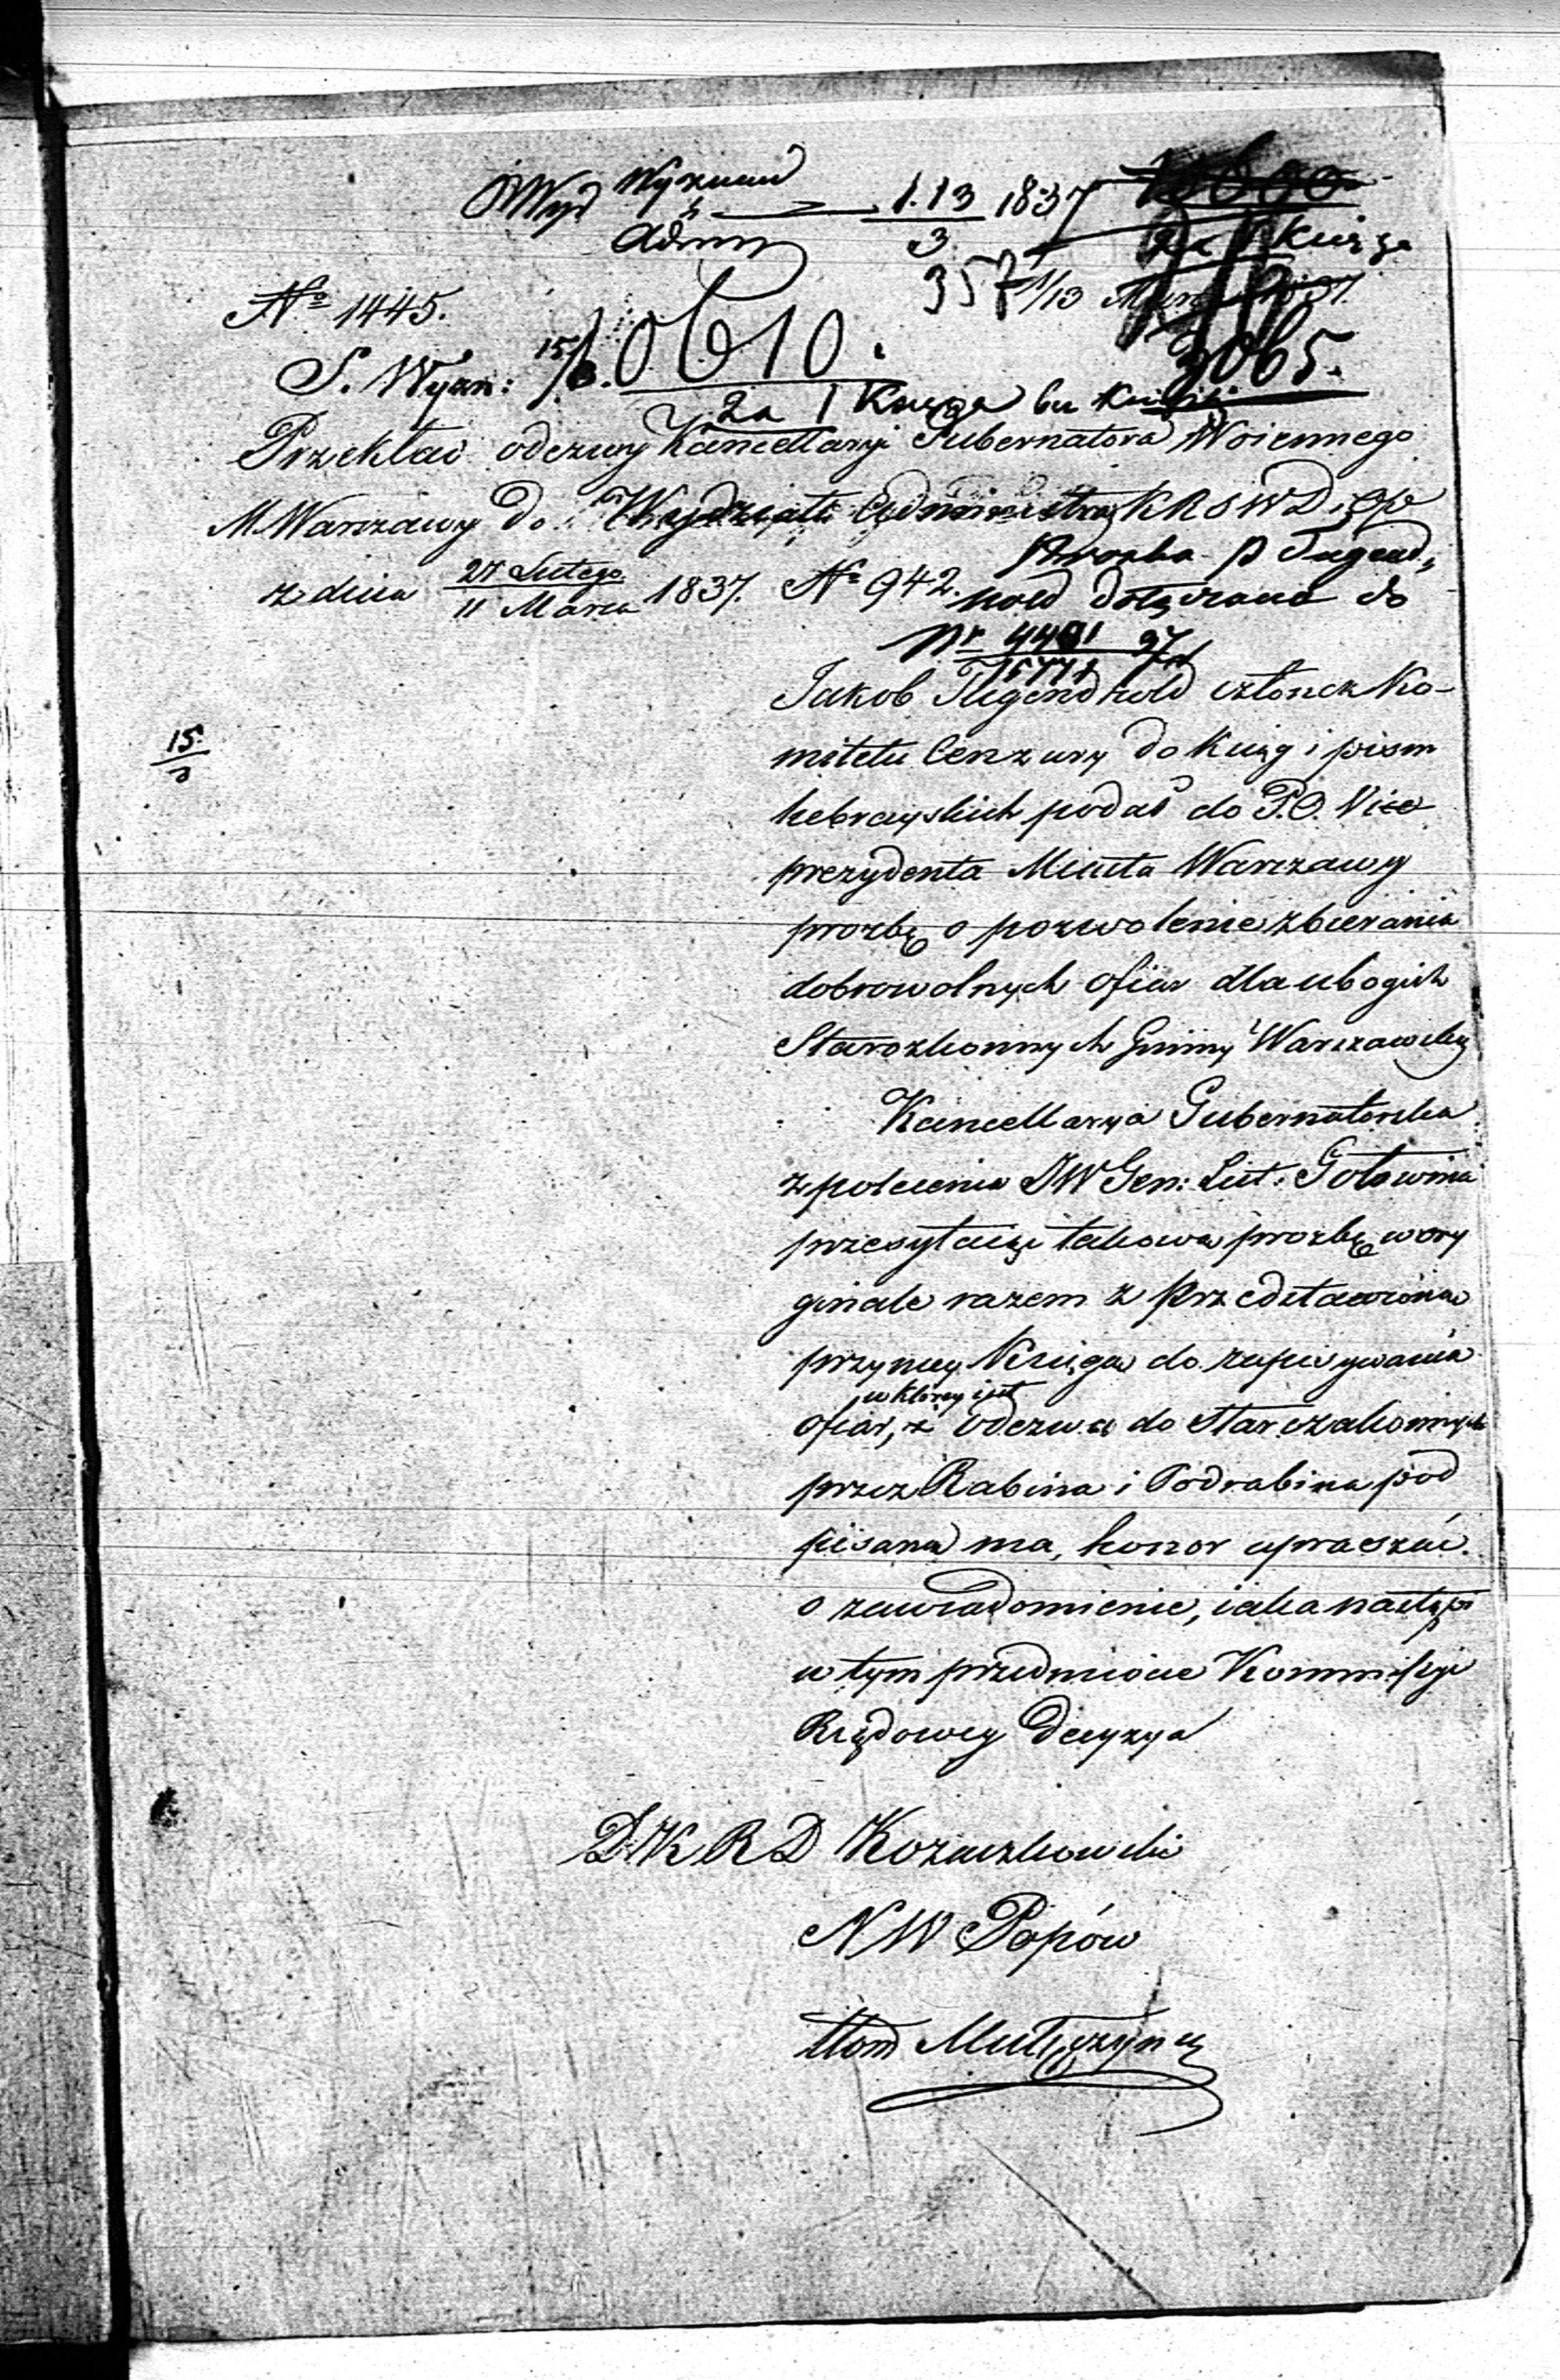 Wyd Wyznań 1.13 1837
Admn 3
2a 1 Księga
357 1/13
Nº 1445.
S. Wyzn: 15/3. 10610. 3065.
2a 1 Księga
Przekład odezwy Kancellaryi Gubernatora Woiennego
M. Warszawy do Wydziału Administrac KRSWD i OP
z dnia 27 Lutego / 11 Marca 1837. Nº 942.
Prozba P Tugend,
hold dołączona do
Nr 4401 37
15771
Jakob Tugendhold członek Ko-
mitetu Cenzury do Ksiąg i pism
hebrayskich podał do P.O. Vice
prezydenta Miasta Warszawy
prozbę o pozwolenie zbierania
dobrowolnych ofiar dla ubogich
Starozkonnych Gminy Warszawskiey
Kancellarya Gubernatorska
z polecenia JW Gen: Leit: Gołowina
przesyłaiąc takową prozbę w ory
ginale razem z przedstawioną
przy niey Księgą do zapisywania
w którey iest
ofiar, z odezwą do Starozakonnych
przez Rabina i Podrabina pod
pisaną ma, honor upraszać
o zawiadomienie, iaka nastąpi
w tym przedmiocie Kommissyi
Rządowey decyzya
D.K.R.D Kozaczkowski
NW Popów
tłom